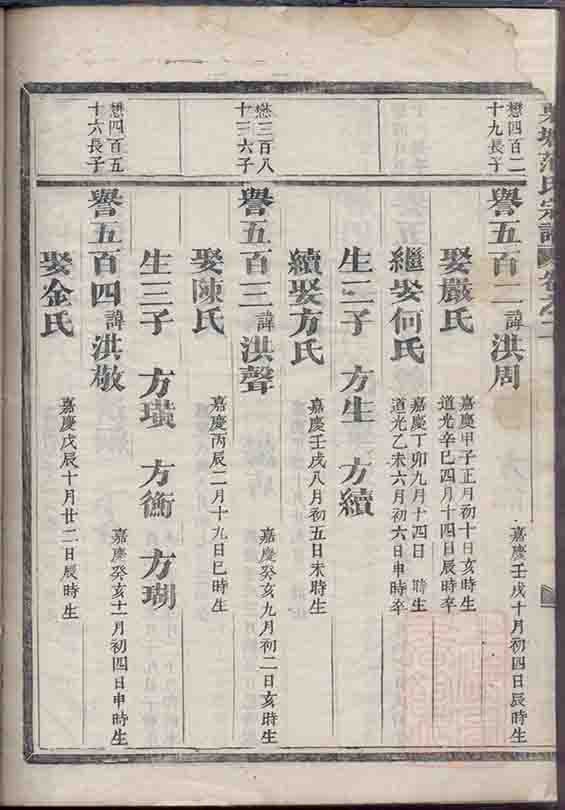 氏宗譜
懋四百二
十九長子
譽五百二 諱洪周 嘉慶壬戌十月初四日辰時生
娶嚴氏 嘉慶甲子正月初十日亥時生
道光辛巳四月十四日辰時卒
繼娶何氏 嘉慶丁卯九月十四日 時生
道光乙未六月初六日申時卒
生二子 方生 方續
續娶方氏 嘉慶壬戌八月初五日未時生
懋三百八
十三六子
譽五百三 諱洪聲 嘉慶癸亥九月初二日亥時生
娶陳氏 嘉慶丙辰二月十九日巳時生
生三子 方璜 方衡 方瑚
懋四百五
十六長子
譽五百四 諱洪敬 嘉慶癸亥十一月初四日申時生
娶金氏 嘉慶戊辰十月廿二日辰時生